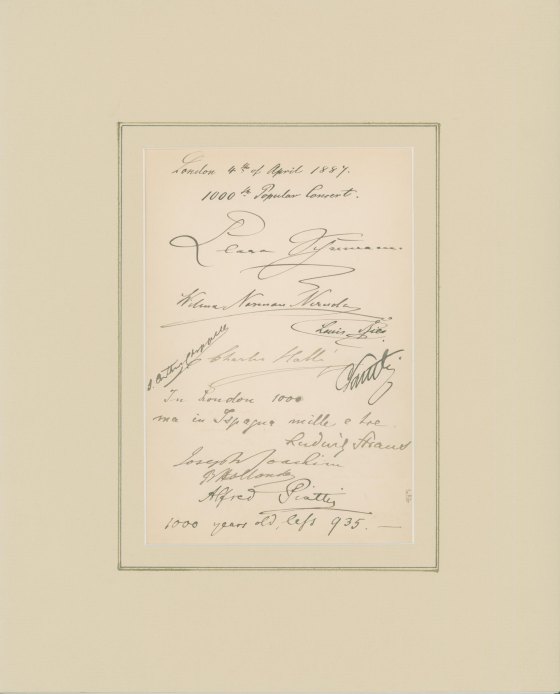 London 4th of April 1887.
1000th Popular Concert.
Clara Schumann.
Wilma Norman Neruda
Louis Ries
Charles Hallé
In London 1000
ma in Ispagna mille e tre.
Ludwig Straus
Joseph Joachim
B Hollander
Alfred Piatti
1000 years old, left 935. —